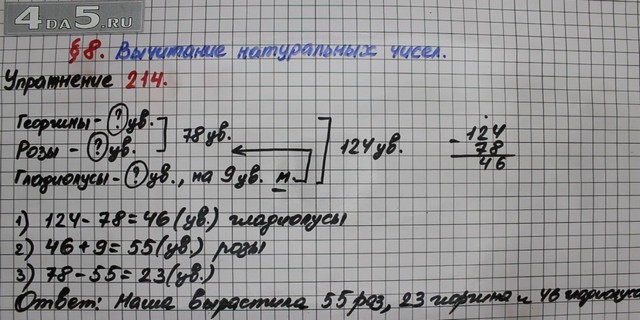 4DA5.RU
§8. Вычитание натуральных чисел.
Упражнение 214.
Георгины - ? ув.
Розы - ? ув.
78 ув.
Гладиолусы - ? ув., на 9 ув. м.
124 ув.
-124
78
46
1) 124 - 78 = 46 (ув.) гладиолусы
2) 46 + 9 = 55 (ув.) розы
3) 78 - 55 = 23 (ув.)
Ответ: Маша вырастила 55 роз, 23 георгина и 46 гладиолусо